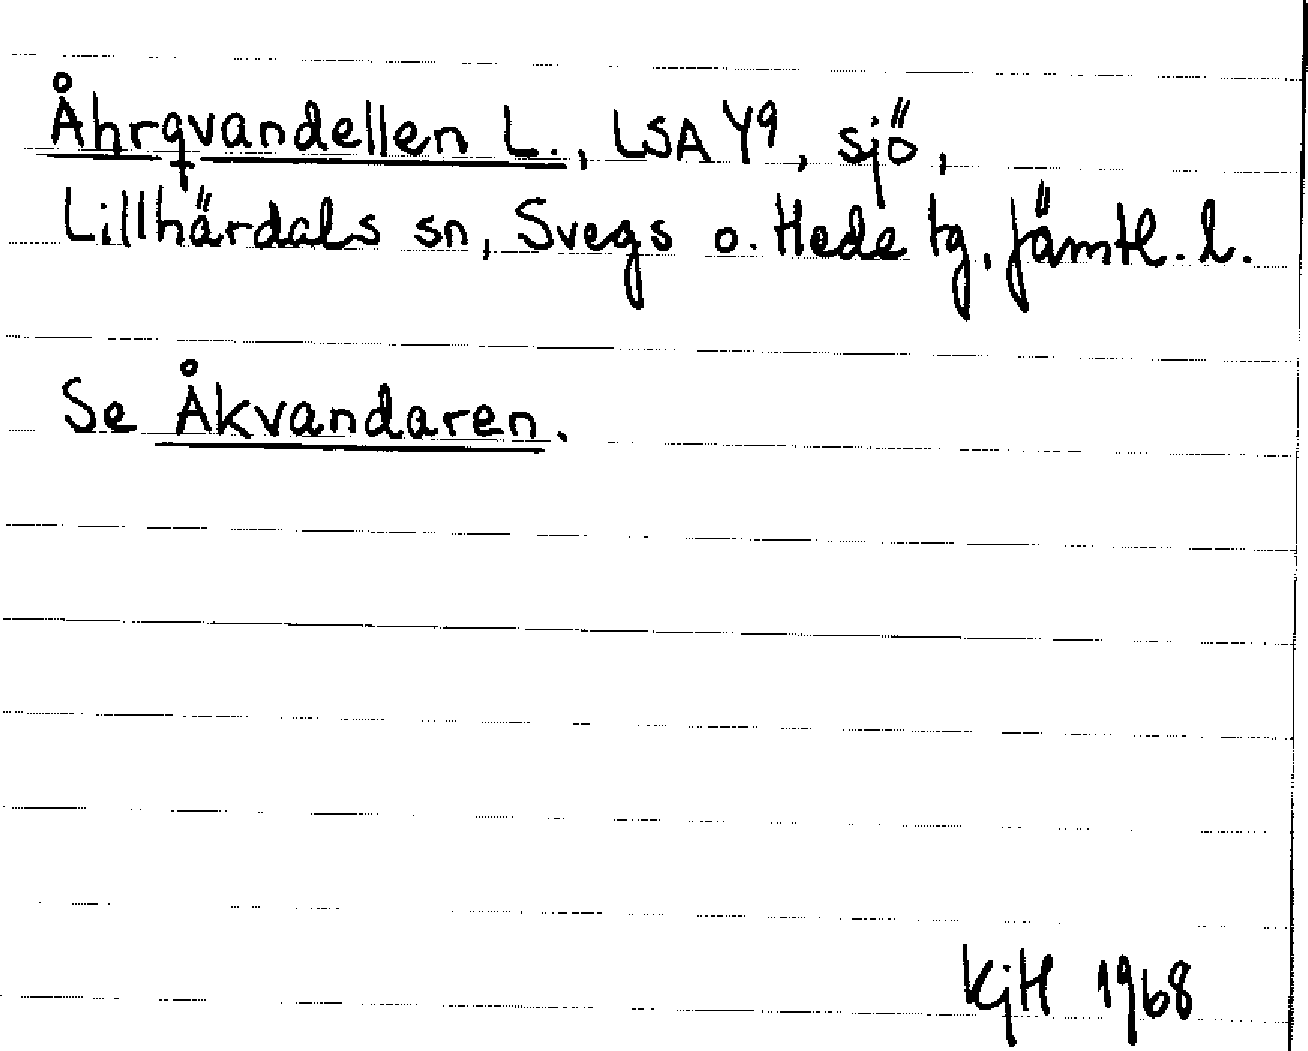 Åhrqvandellen L., LSA Y9, sjö,
Lillhärdals sn, Svegs o. Hede tg, Jämtl. l.
Se Åkvandaren.
KjH 1968